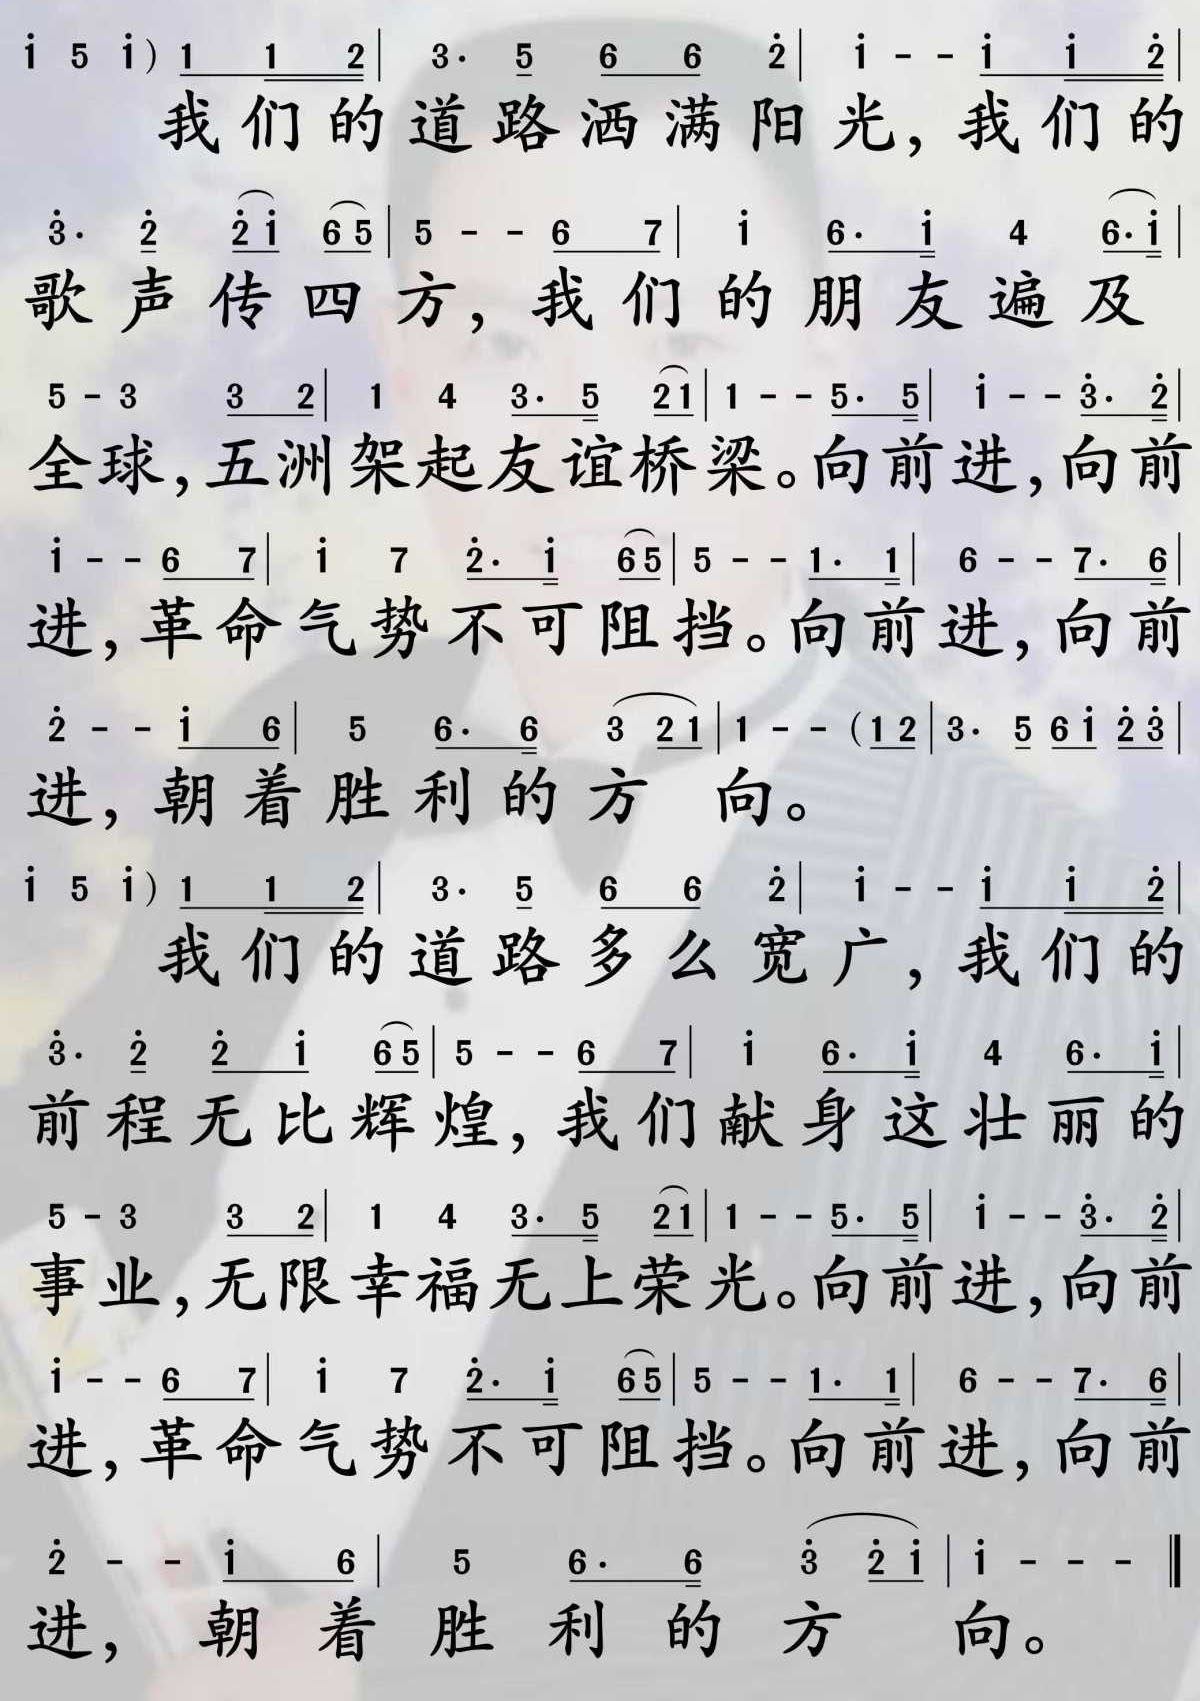 i 5 i) 1 1 2| 3· 5 6 6 2| i - - i i 2|
我们的道路洒满阳光，我们的
3· 2 2 i 6 5| 5 - - 6 7| i 6· i 4 6· i|
歌声传四方，我们的朋友遍及
5 - 3 3 2| 1 4 3· 5 2 1| 1 - - 5· 5| i - - 3· 2|
全球，五洲架起友谊桥梁。向前进，向前
i - - 6 7| i 7 2· i 6 5| 5 - - 1· 1| 6 - - 7· 6|
进，革命气势不可阻挡。向前进，向前
2 - - i 6| 5 6· 6 3 2 1| 1 - - (1 2| 3· 5 6 i 2 3|
进，朝着胜利的方向。
i 5 i) 1 1 2| 3· 5 6 6 2| i - - i i 2|
我们的道路多么宽广，我们的
3· 2 2 i 6 5| 5 - - 6 7| i 6· i 4 6· i|
前程无比辉煌，我们献身这壮丽的
5 - 3 3 2| 1 4 3· 5 2 1| 1 - - 5· 5| i - - 3· 2|
事业，无限幸福无上荣光。向前进，向前
i - - 6 7| i 7 2· i 6 5| 5 - - 1· 1| 6 - - 7· 6|
进，革命气势不可阻挡。向前进，向前
2 - - i 6| 5 6· 6 3 2 i| i - - - ‖
进，朝着胜利的方向。